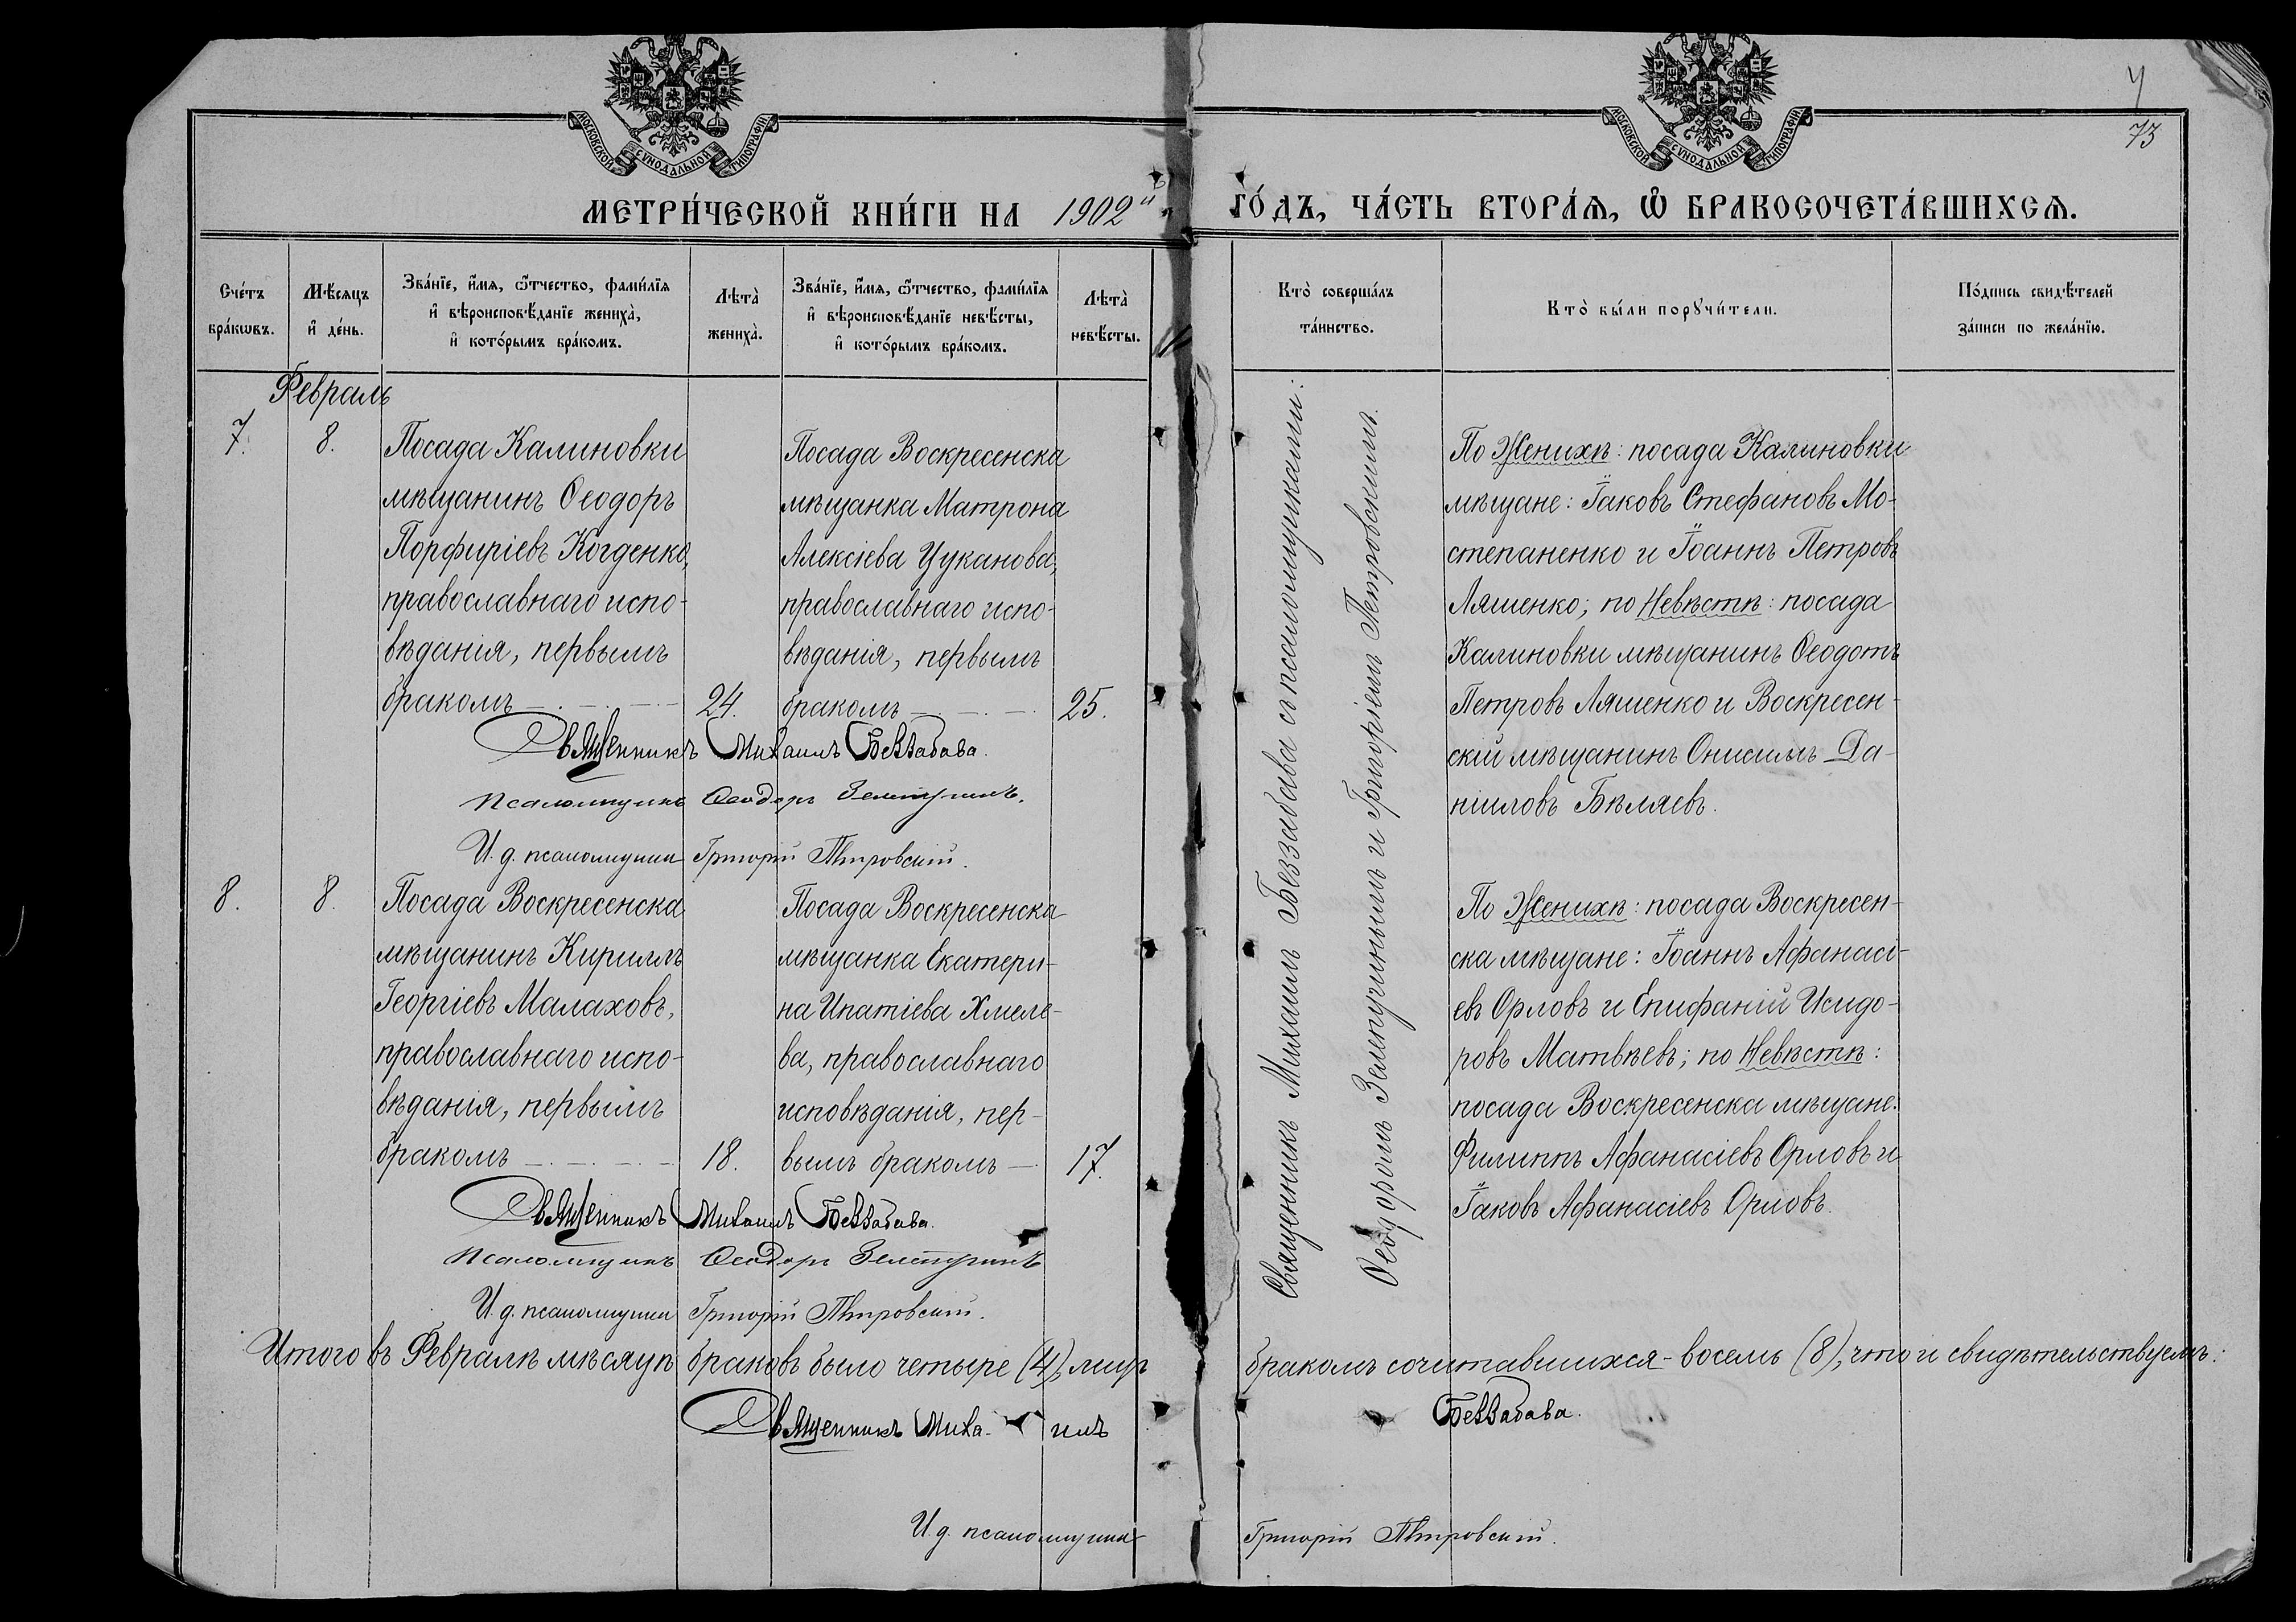 МОСКОВСКОЙ СѴНОДАЛЬНОЙ ТИПОГРАФІИ
МОСКОВСКОЙ СѴНОДАЛЬНОЙ ТИПОГРАФІИ
73
МЕТРИ́ЧЕСКОЙ КНИ́ГИ НА 1902й ГО́ДЪ, ЧА́СТЬ ВТОРА́Ѧ, Ѡ҆ БРАКОСОЧЕТА́ВШИХСѦ.
Сче́тъ
бра́кѡвъ.
Мѣ́сѧцъ
и҆ де́нь.
Зва́нїе, и҆́мѧ, ѻ҆́тчество, фами́лїѧ
и҆ вѣроисповѣ́данїе жениха̀,
и҆ кото́рымъ бра́комъ.
Лѣта̀
жениха̀.
Зва́нїе, и҆́мѧ, ѻ҆́тчество, фами́лїѧ
и҆ вѣроисповѣ́данїе невѣ́сты,
и҆ кото́рымъ бра́комъ.
Лѣта̀
невѣ́сты.
Кто̀ соверша́лъ
та́инство.
Кто̀ бы́ли порꙋчи́тели.
По́дпись свидѣ́телей
за́писи по жела́нїю.
Февраль
7.
8.
Посада Калиновки
мѣщанинъ Ѳеодоръ
Порфиріевъ Когденко,
православнаго испо-
вѣданія, первымъ
бракомъ
24.
Посада Воскресенска
мѣщанка Матрона
Алексіева Цуканова,
православнаго испо-
вѣданія, первымъ
бракомъ
25.
Священникъ Михаилъ Беззабава съ псаломщиками:
Ѳеодоромъ Зелепугинымъ и Григоріемъ Петровскимъ.
По Женихѣ: посада Калиновки
мѣщане: Іаковъ Стефановъ Мо-
степаненко и Іоаннъ Петровъ
Ляшенко; по Невѣстѣ: посада
Калиновки мѣщанинъ Ѳеодотъ
Петровъ Ляшенко и Воскресен-
скій мѣщанинъ Онисимъ Да-
ніиловъ Бѣляевъ.
Священникъ Михаилъ Беззабава.
Псаломщикъ Ѳеодоръ Зелепугинъ.
И. д. псаломщика Григорій Петровскій.
8.
8.
Посада Воскресенска
мѣщанинъ Кириллъ
Георгіевъ Малаховъ,
православнаго испо-
вѣданія, первымъ
бракомъ
18.
Посада Воскресенска
мѣщанка Екатери-
на Ипатіева Хмеле-
ва, православнаго
исповѣданія, пер-
вымъ бракомъ
17.
По Женихѣ: посада Воскресен-
ска мѣщане: Іоаннъ Афанасі-
евъ Орловъ и Епифаній Исидо-
ровъ Матвѣевъ; по Невѣстѣ:
посада Воскресенска мѣщане:
Филиппъ Афанасіевъ Орловъ и
Іаковъ Афанасіевъ Орловъ.
Священникъ Михаилъ Беззабава.
Псаломщикъ Ѳеодоръ Зелепугинъ
И. д. псаломщика Григорій Петровскій.
Итого въ Февралѣ мѣсяцѣ браковъ было четыре (4), лицъ бракомъ сочитавшихся - восемь (8), что и свидѣтельствуемъ:
Священникъ Миха-илъ Беззабава.
И. д. псаломщика Григорій Петровскій.